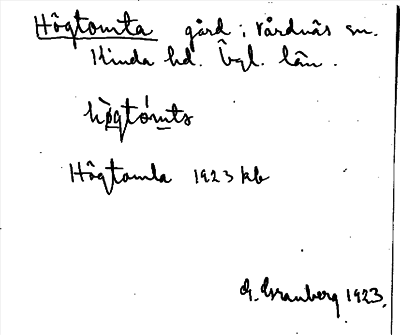 Högtomta gård i Vårdnäs sn.
Kinda hd. Ögl. län.
Högtomta 1923 kb
G. Granberg 1923.